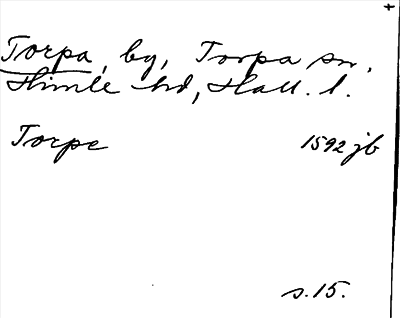 Torpa, by, Torpa sn,
Himle hd, Hall. l.
Torpe 1592 jb
s. 15.